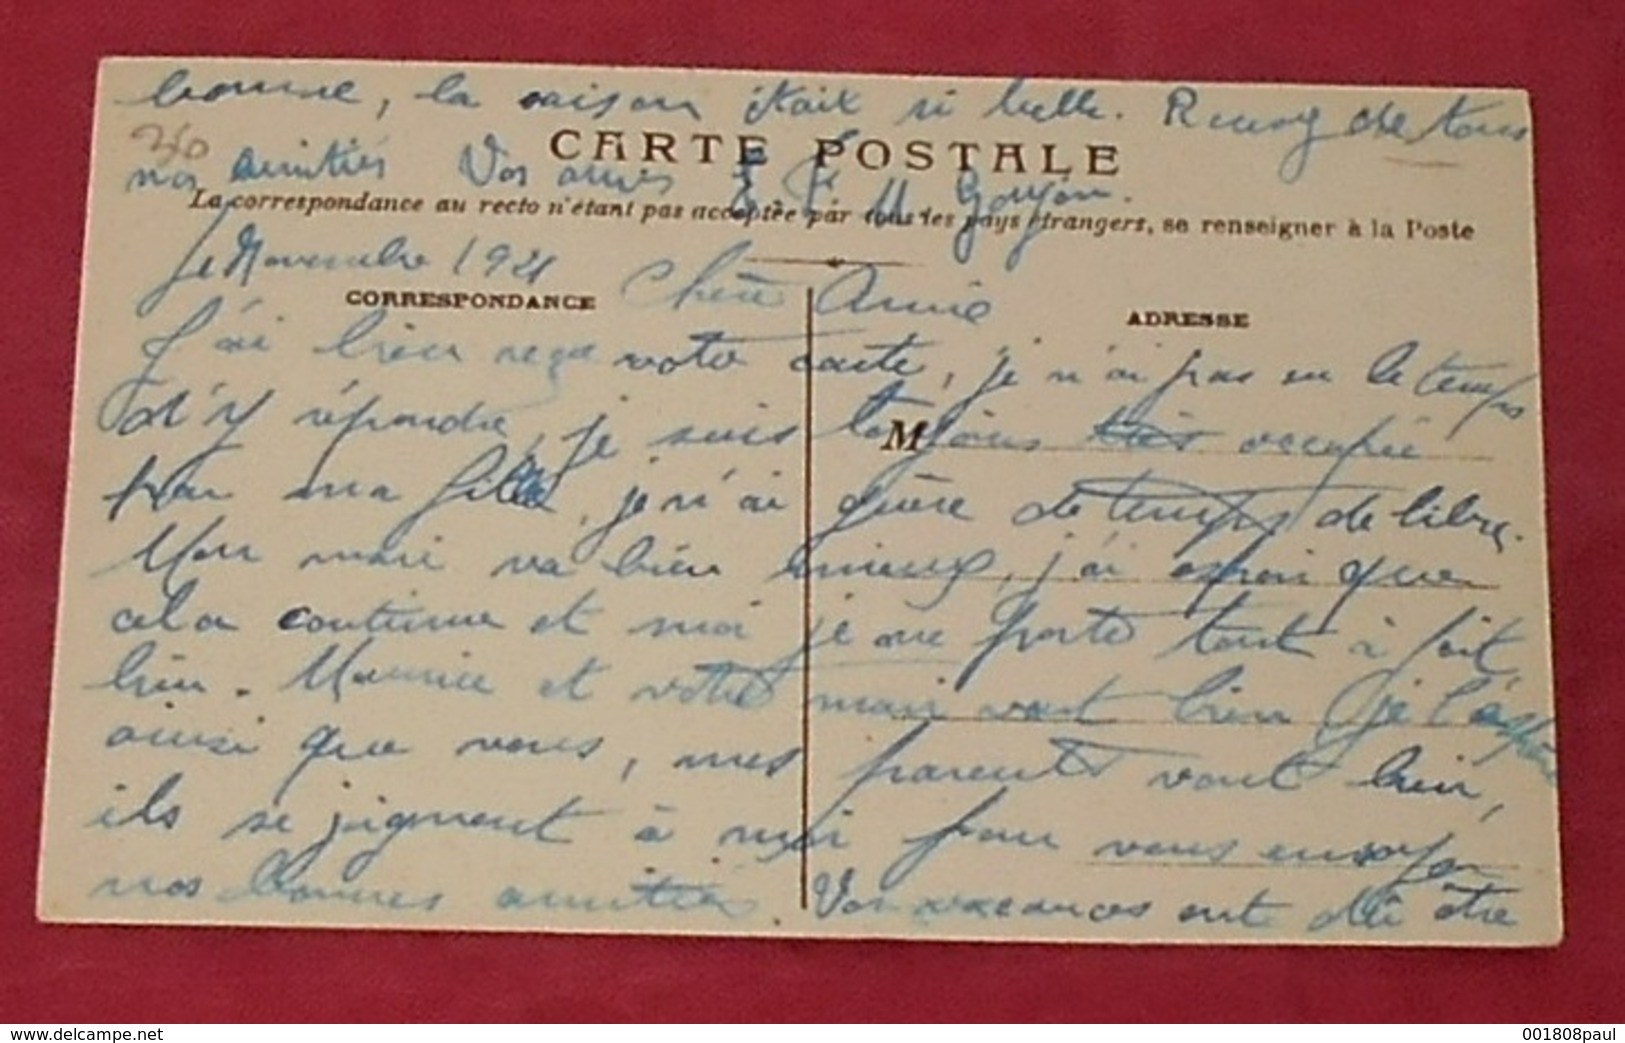 bonne, la saison était si belle. Recevez de tous
nos amitiés Vos amis E F M Goujon.
350
CARTE POSTALE
La correspondance au recto n'étant pas acceptée par tous les pays étrangers, se renseigner à la Poste
Le Novembre 1921 Chère Amie
CORRESPONDANCE
ADRESSE
J'ai bien reçu votre carte, je n'ai pas eu le temps
d'y répondre, je suis toujours très occupée
M
par ma fille, je n'ai guère de temps de libre.
Mon mari va bien mieux, j'ai espoir que
cela continue et moi je me porte tout à fait
bien. Maurice et votre mari vont bien je l'espère
ainsi que vous, mes parents vont bien,
ils se joignent à moi pour vous envoyer
nos bonnes amitiés. Vos vacances ont dû être
www.delcampe.net
001808paul